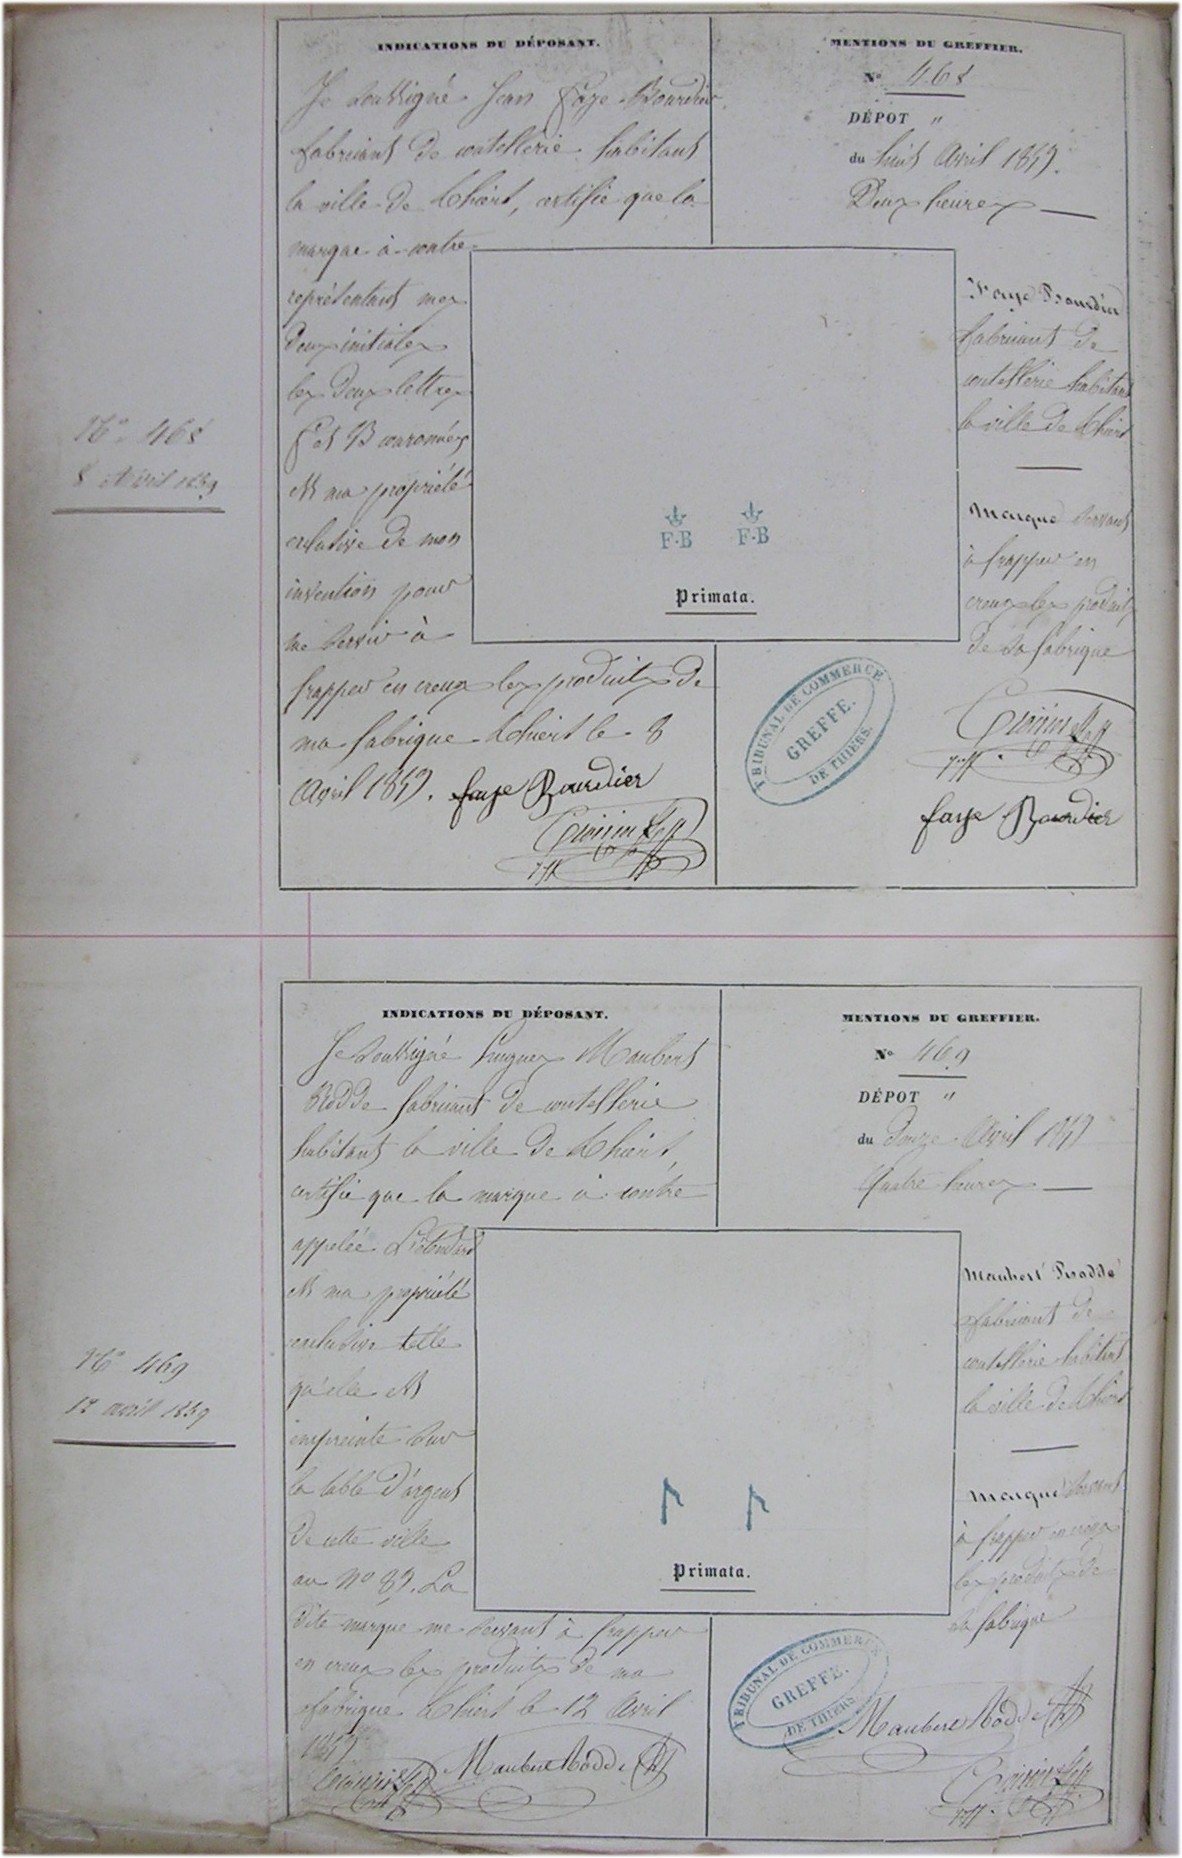 INDICATIONS DU DÉPOSANT.
Je soussigné Jean Faye Bourdier
fabricant de coutellerie habitant
la ville de Thiers, certifie que la
marque à contre
représentant mes
deux initiales
les deux lettres
F et B couronnées
est ma propriété
exclusive de mon
invention pour
me servir à
frapper en creux les produits de
ma fabrique Thiers le 8
Avril 1859. Faye Bourdier
MENTIONS DU GREFFIER.
N° 468
DÉPOT "
du huit Avril 1859.
Deux heures
Faye Bourdier
fabricant de
coutellerie habitant
la ville de Thiers
Marque servant
à frapper en
creux les produits
de sa fabrique
faye Bourdier
F·B F·B
Primata.
TRIBUNAL DE COMMERCE
GREFFE.
DE THIERS.
N° 468
8 Avril 1859
INDICATIONS DU DÉPOSANT.
Je soussigné Hugues Maubert
Rodde fabricant de coutellerie
habitant la ville de Thiers
certifie que la marque à contre
appelée L'étendard
est ma propriété
exclusive telle
qu'elle est
empreinte sur
la table d'argent
de cette ville
au N° 89. La
dite marque me servant à frapper
en creux les produits de ma
fabrique Thiers le 12 Avril
1859
Maubert Rodde
MENTIONS DU GREFFIER.
N° 469
DÉPOT "
du douze Avril 1859
Quatre heures
Maubert Rodde
fabricant de
coutellerie habitant
la ville de Thiers
Marque servant
à frapper en creux
les produits de
sa fabrique
Maubert Rodde
Primata.
TRIBUNAL DE COMMERCE
GREFFE.
DE THIERS
N° 469
12 avril 1859